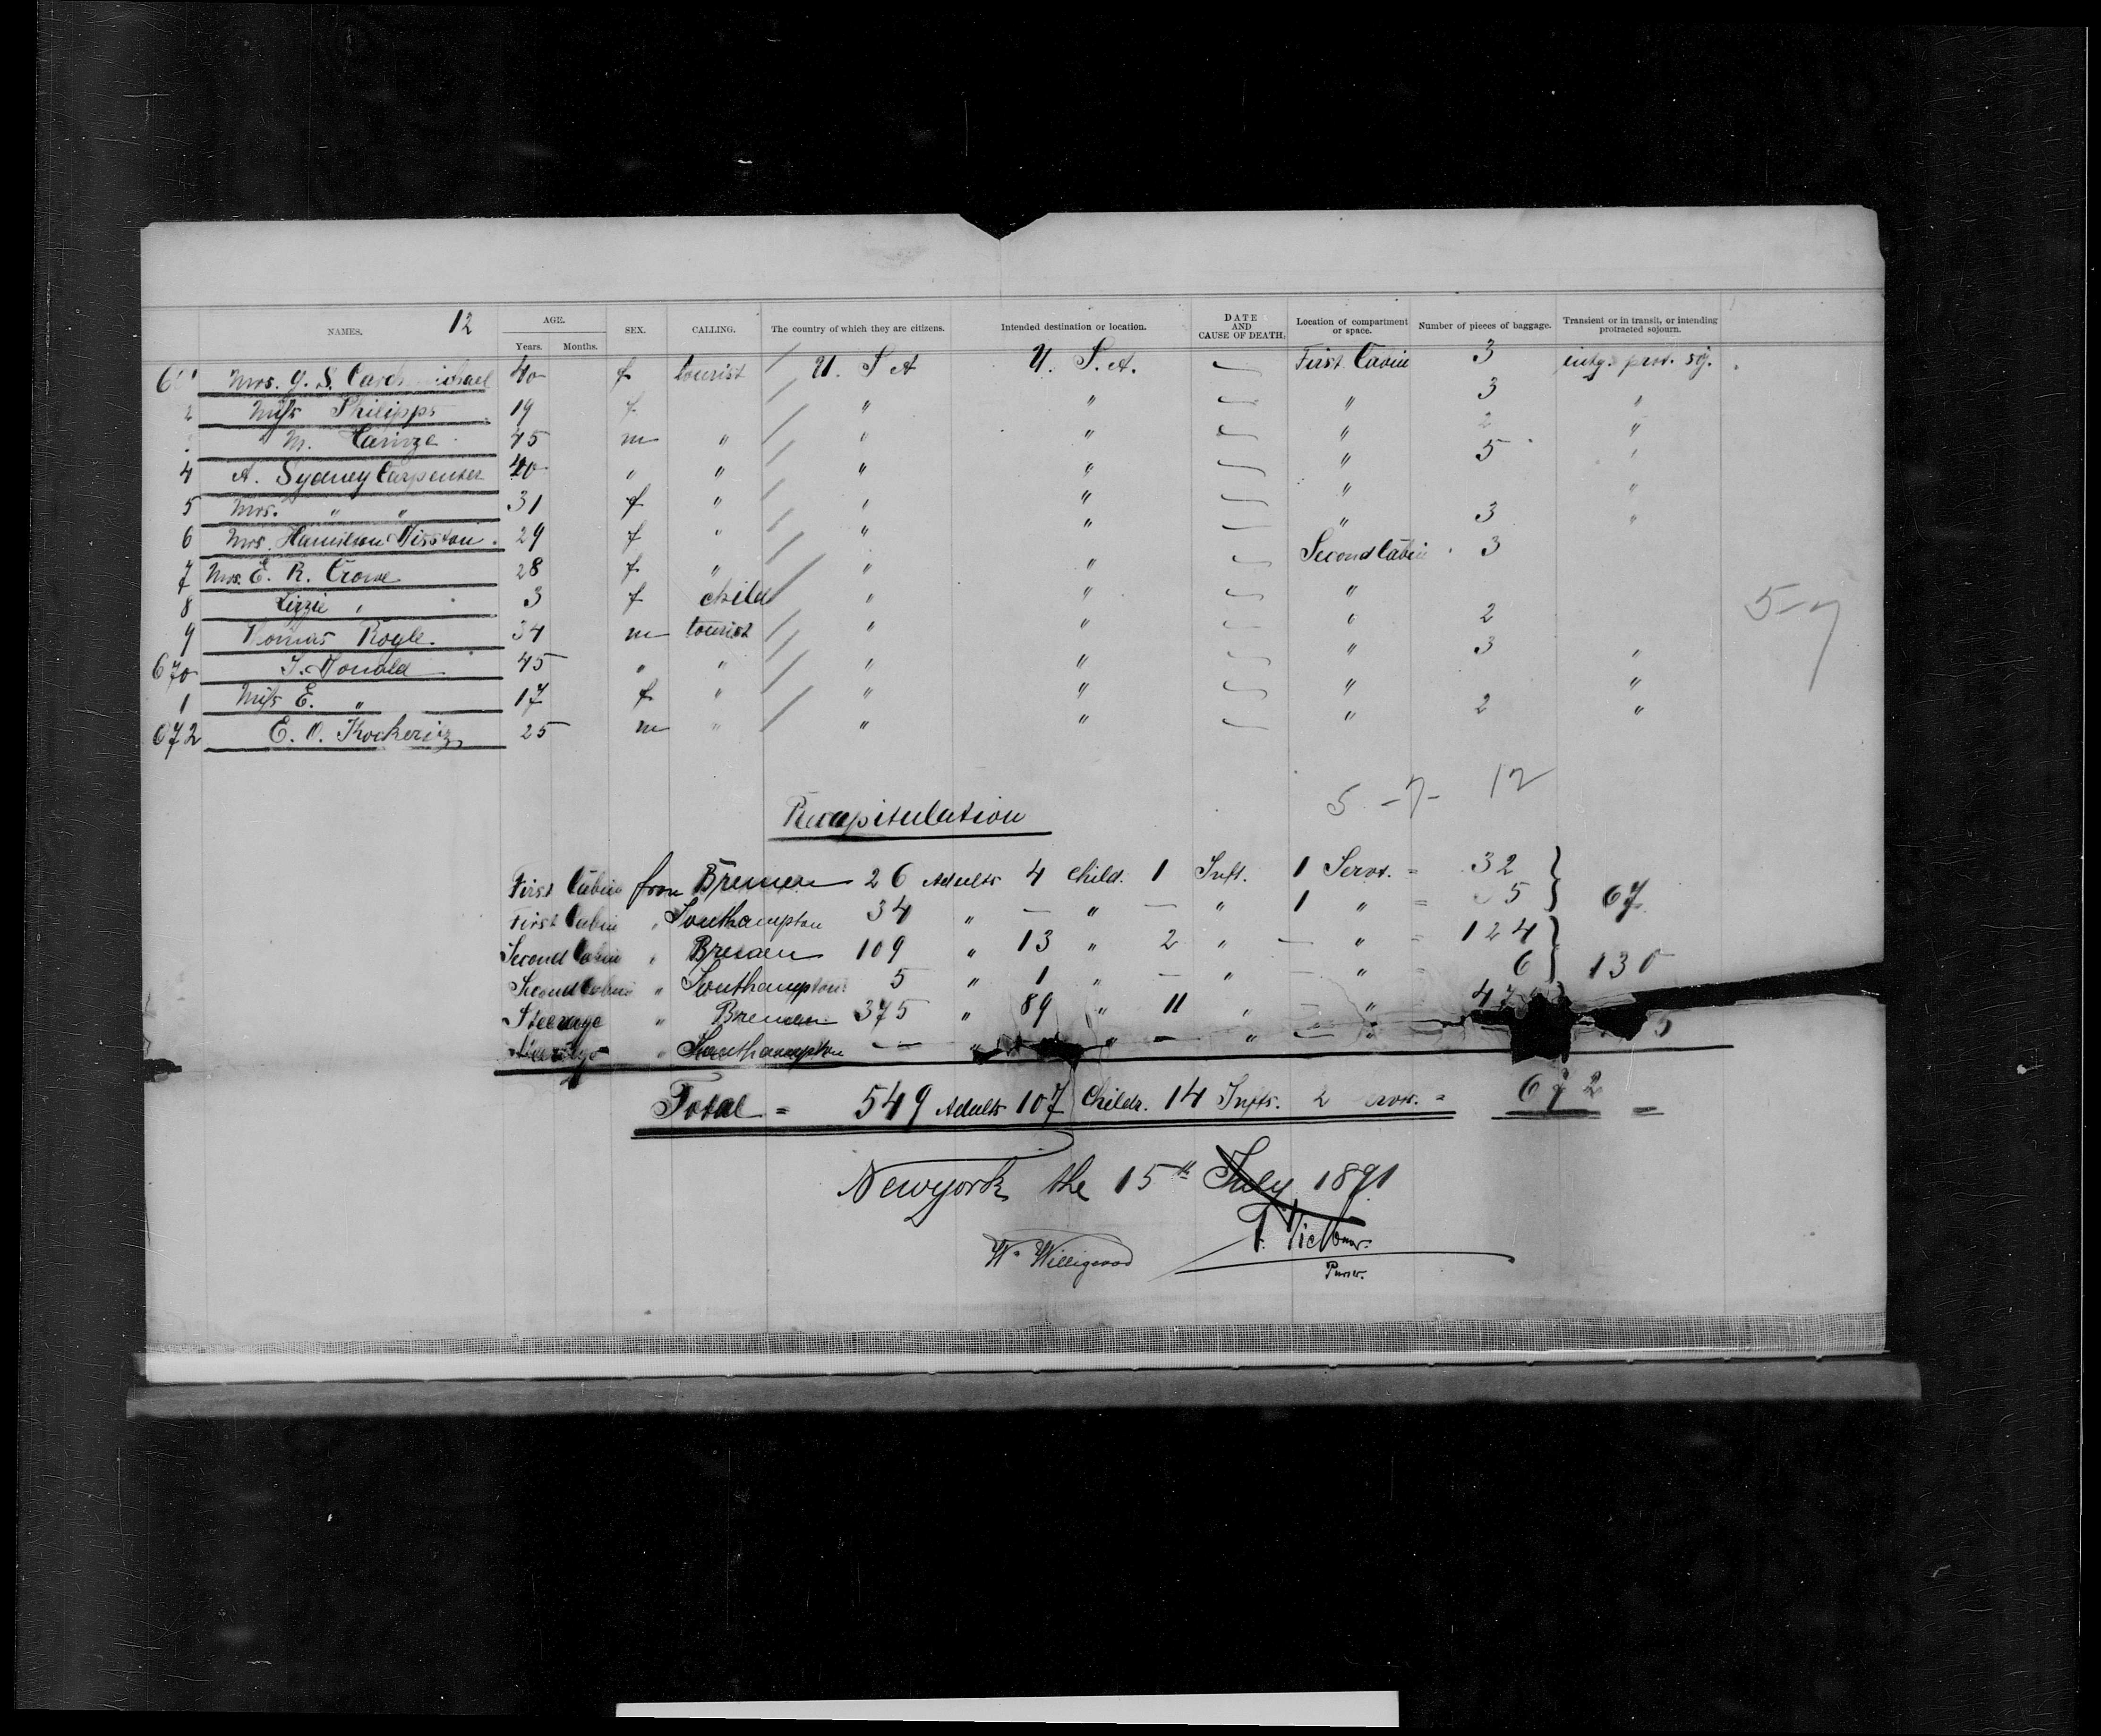 NAMES. 12 AGE. Years. Months. SEX. CALLING. The country of which they are citizens. Intended destination or location. DATE AND CAUSE OF DEATH. Location of compartment or space. Number of pieces of baggage. Transient or in transit, or intending protracted sojourn.
Mrs. G. S. 40 f tourist U. S A U. S. A. First Cabin 3 intg. prot. soj.
2 Miss Philipps 19 f " " " 3 "
M. 45 m " " " " 2 "
4 A. Sydney Carpenter 40 " " " " " 5 "
5 Mrs. " " 31 f " " " " "
6 Mrs. Hamilton Disston. 29 f " " " " 3 "
7 Mrs. E. R. Crowe 28 f " " " Second Cabin 3
8 Lizzie " 3 f child " " "
9 Thomas Royle. 34 m tourist " " " 2
670 T. Donald 45 " " " " " 3 "
1 Miss E. " 17 f " " " " "
672 E. O. 25 m " " " " 2 "
5-7
5 -7- 12
Recapitulation
First Cabin from Bremen 26 Adults 4 Child. 1 Inft. 1 Servt. = 32
First Cabin " Southampton 34 " — " — " 1 " = 35 } 67
Second Cabin " Bremen 109 " 13 " 2 " — " = 124
Second Cabin " Southampton 5 " 1 " — " — " = 6 } 130
Steerage " Bremen 375 " 89 " 11 " — "
Steerage " Southampton — " " — " — "
Total = 549 Adults 107 Childr. 14 Infts. 2 = 672
Newyork the 15th July 1891
W. Willigerod
Purser.